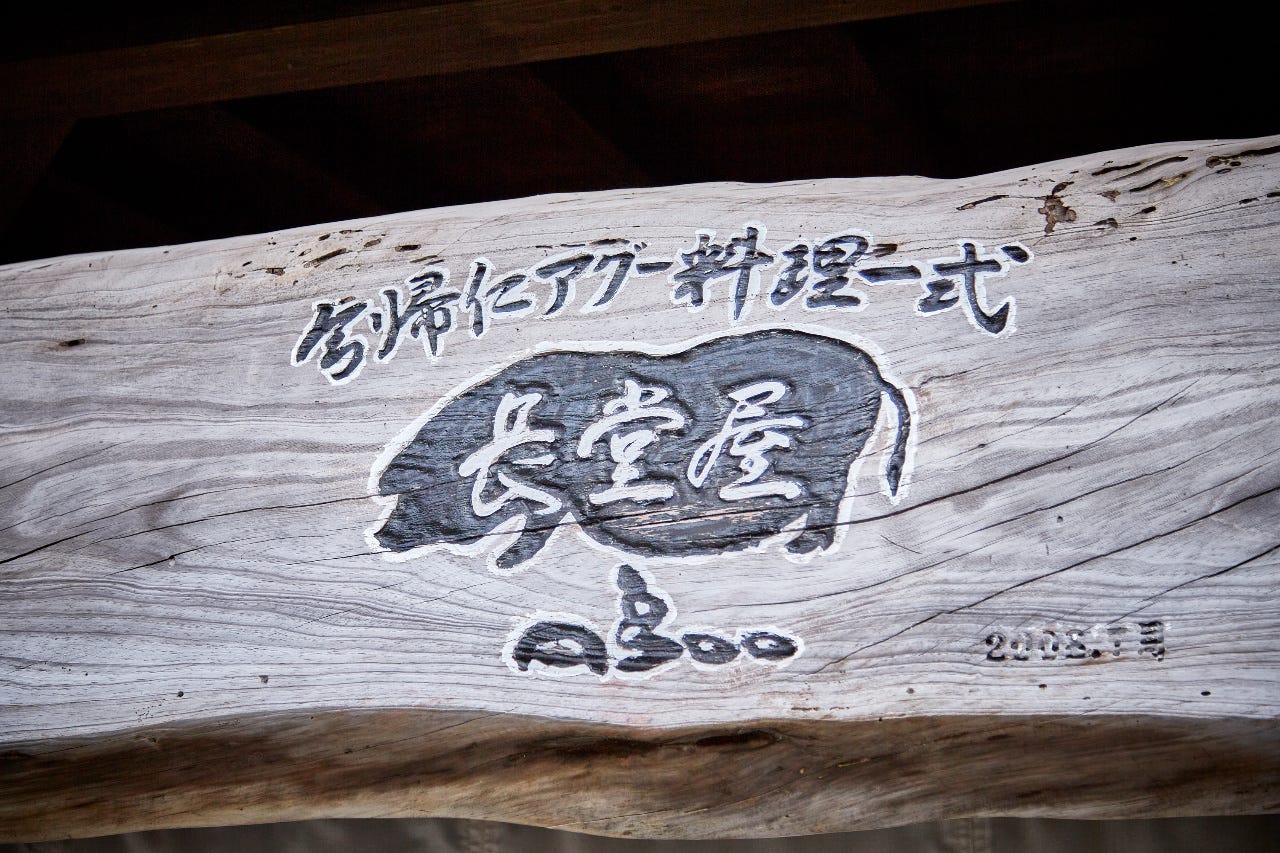 今帰仁アグー料理一式
長堂屋
aboo
2008.7月